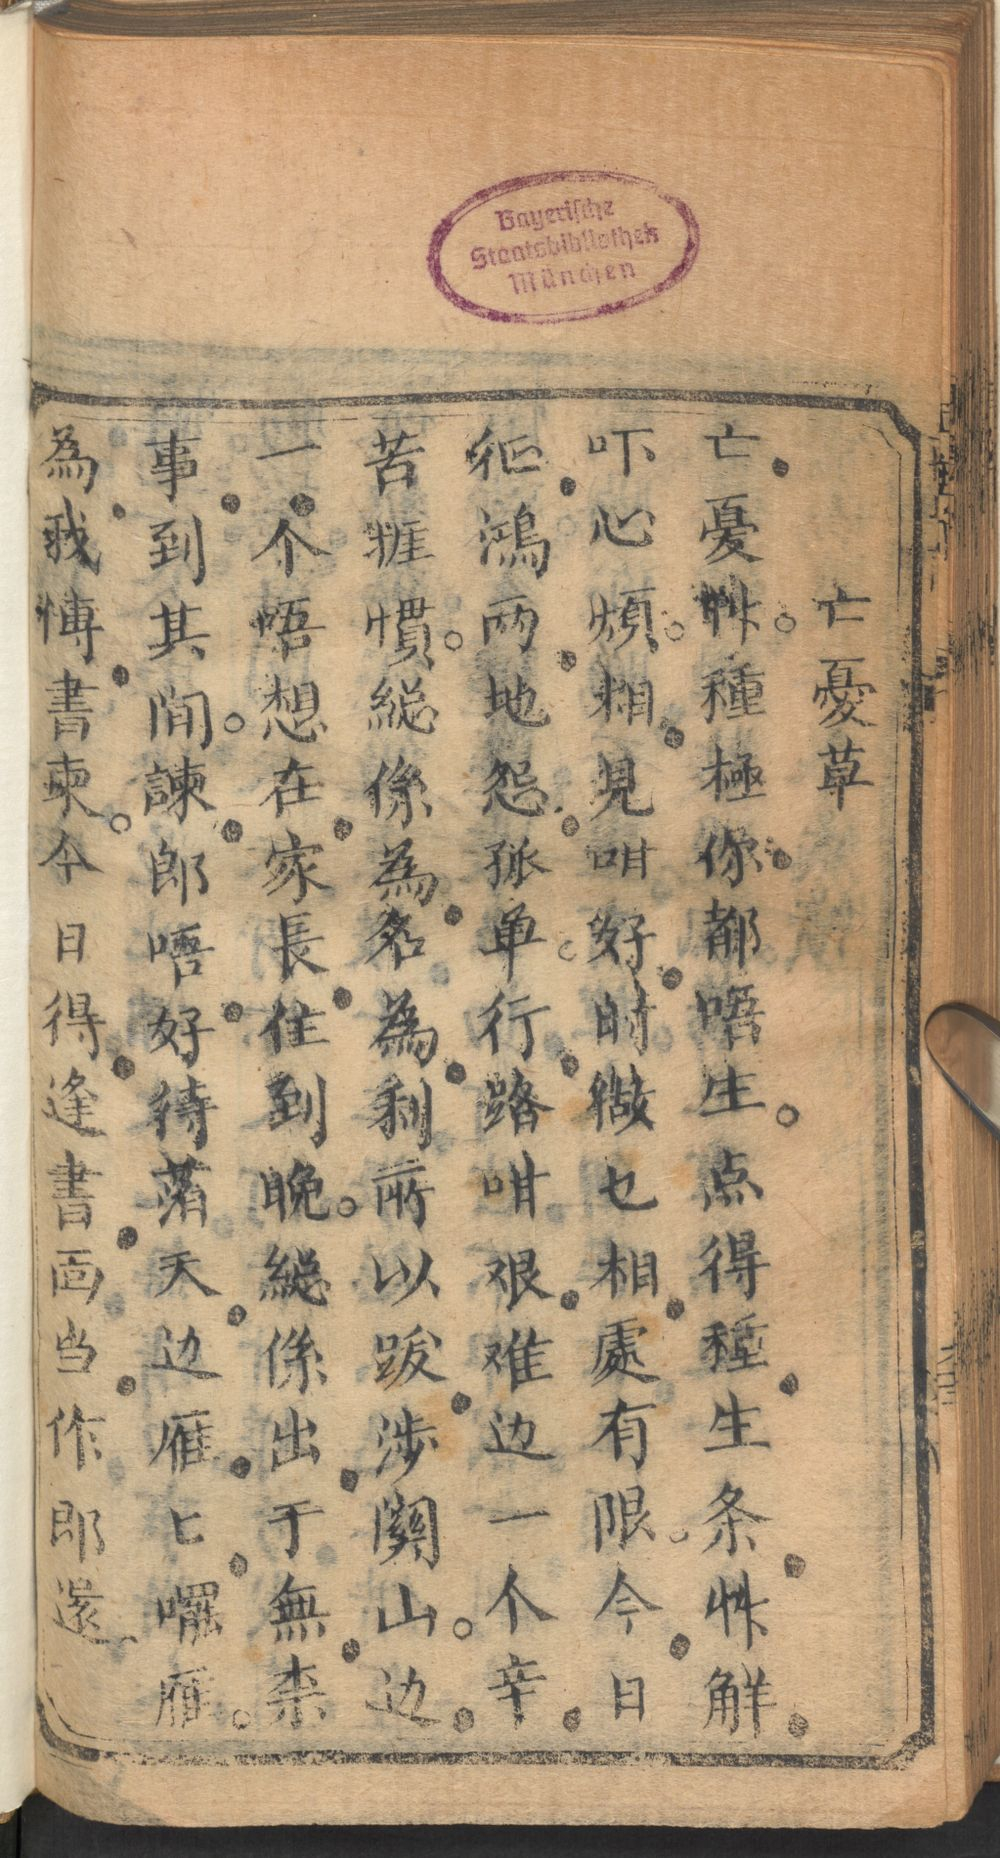 Bayerische
Staatsbibliothek
München
亡憂草
亡憂艸種極你都唔生点得種生条艸解
吓心煩相見咁好时做乜相處有限今日
征鴻兩地怨孤单行路咁艰难边一个辛
苦捱慣総係為名為利所以跋涉関山边
一个唔想在家長住到晚総係出于無柰
事到其间諫郎唔好待蕱天边雁匕囉雁
為我愽書柬今日得逢書面当作郎還